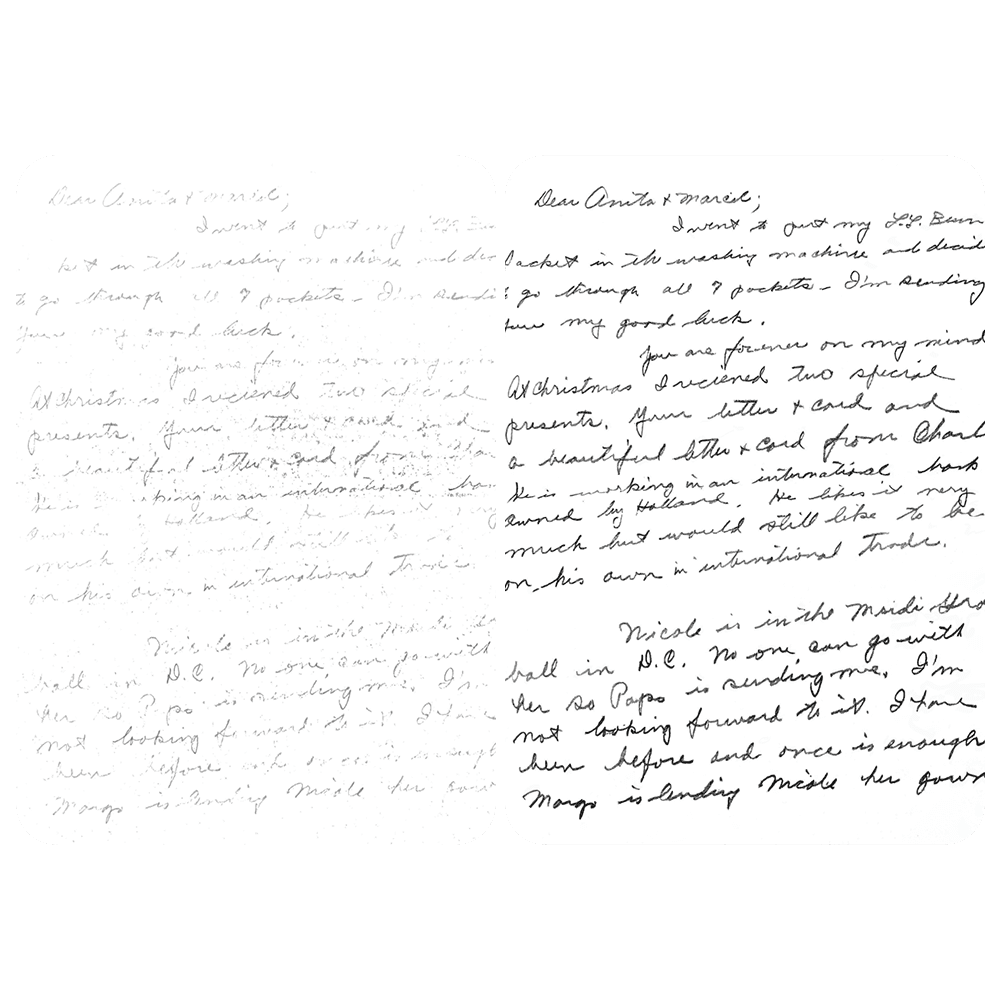 Dear Anita & Marcel;
I went to put my L.L. Bean
ket in the washing machine and
to go through all 7 pockets - I'm
my good luck.
You are forever on my
At Christmas I recieved two special
presents. Your letter & card and
a beautiful letter & card from
He is working in an international
Holland. He likes it very
much but would still like to
on his own in international trade.
Nicole is in the Mardi
ball in D.C. No one can go with
her so Papo is sending me. I'm
not looking forward to it. I have
been before and once is enough
Margo is lending Nicole her gown
Dear Anita & Marcel;
I went to put my L.L. Bean
Jacket in the washing machine and decid
go through all 7 pockets - I'm sending
my good luck.
You are forever on my mind
At Christmas I recieved two special
presents. Your letter & card and
a beautiful letter & card from Charl
He is working in an international bank
owned by Holland. He likes it very
much but would still like to be
on his own in international trade.
Nicole is in the Mardi Gra
ball in D.C. No one can go with
her so Papo is sending me. I'm
not looking forward to it. I have
been before and once is enough
Margo is lending Nicole her gown